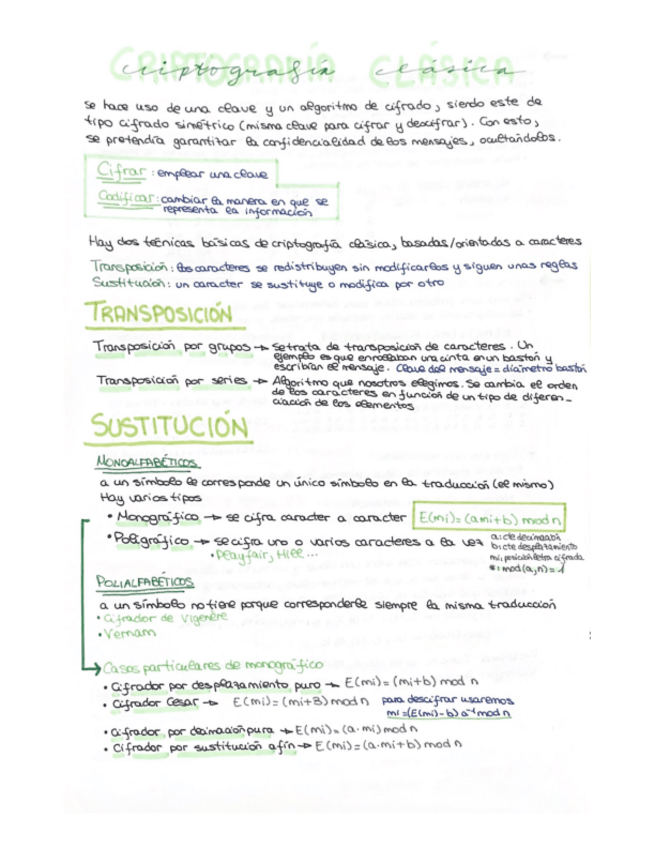 CRIPTOGRAFÍA CLÁSICA
criptografía clásica
se hace uso de una clave y un algoritmo de cifrado, siendo este de
tipo cifrado simétrico (misma clave para cifrar y descifrar). Con esto,
se pretendía garantizar la confidencialidad de los mensajes, ocultándolos.
Cifrar: emplear una clave
Codificar: cambiar la manera en que se
representa la información
Hay dos técnicas básicas de criptografía clásica, basadas/orientadas a caracteres
Transposición: los caracteres se redistribuyen sin modificarlos y siguen unas reglas
Sustitución: un caracter se sustituye o modifica por otro
TRANSPOSICIÓN
Transposición por grupos → Se trata de transposición de caracteres. Un
ejemplo es que enrollaban una cinta en un bastón y
escribían el mensaje. Clave del mensaje = diámetro bastón
Transposición por series → Algoritmo que nosotros elegimos. Se cambia el orden
de los caracteres en función de un tipo de diferen-
ciación de los elementos
SUSTITUCIÓN
MONOALFABÉTICOS
a un símbolo le corresponde un único símbolo en la traducción (el mismo)
Hay varios tipos
• Monográfico → se cifra caracter a caracter E(mi)=(ami+b) mod n
• Poligráfico → se cifra uno o varios caracteres a la vez
• Playfair, Hill...
a: cte decimación
b: cte desplazamiento
mi: posición letra cifrada
*: mod(a,n)=1
POLIALFABÉTICOS
a un símbolo no tiene porque corresponderle siempre la misma traducción
• Cifrador de Vigenère
• Vernam
Casos particulares de monográfico
• Cifrador por desplazamiento puro → E(mi)=(mi+b) mod n
• Cifrador Cesar → E(mi)=(mi+3) mod n para descifrar usaremos
mi=(E(mi)-b) a⁻¹ mod n
• Cifrador por decimación pura → E(mi)=(a·mi) mod n
• Cifrador por sustitución afín → E(mi)=(a·mi+b) mod n